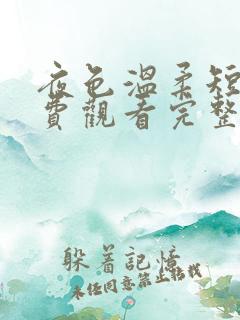 夜色温柔短
費觀看完整
躲着記憶
未任同意禁止转载